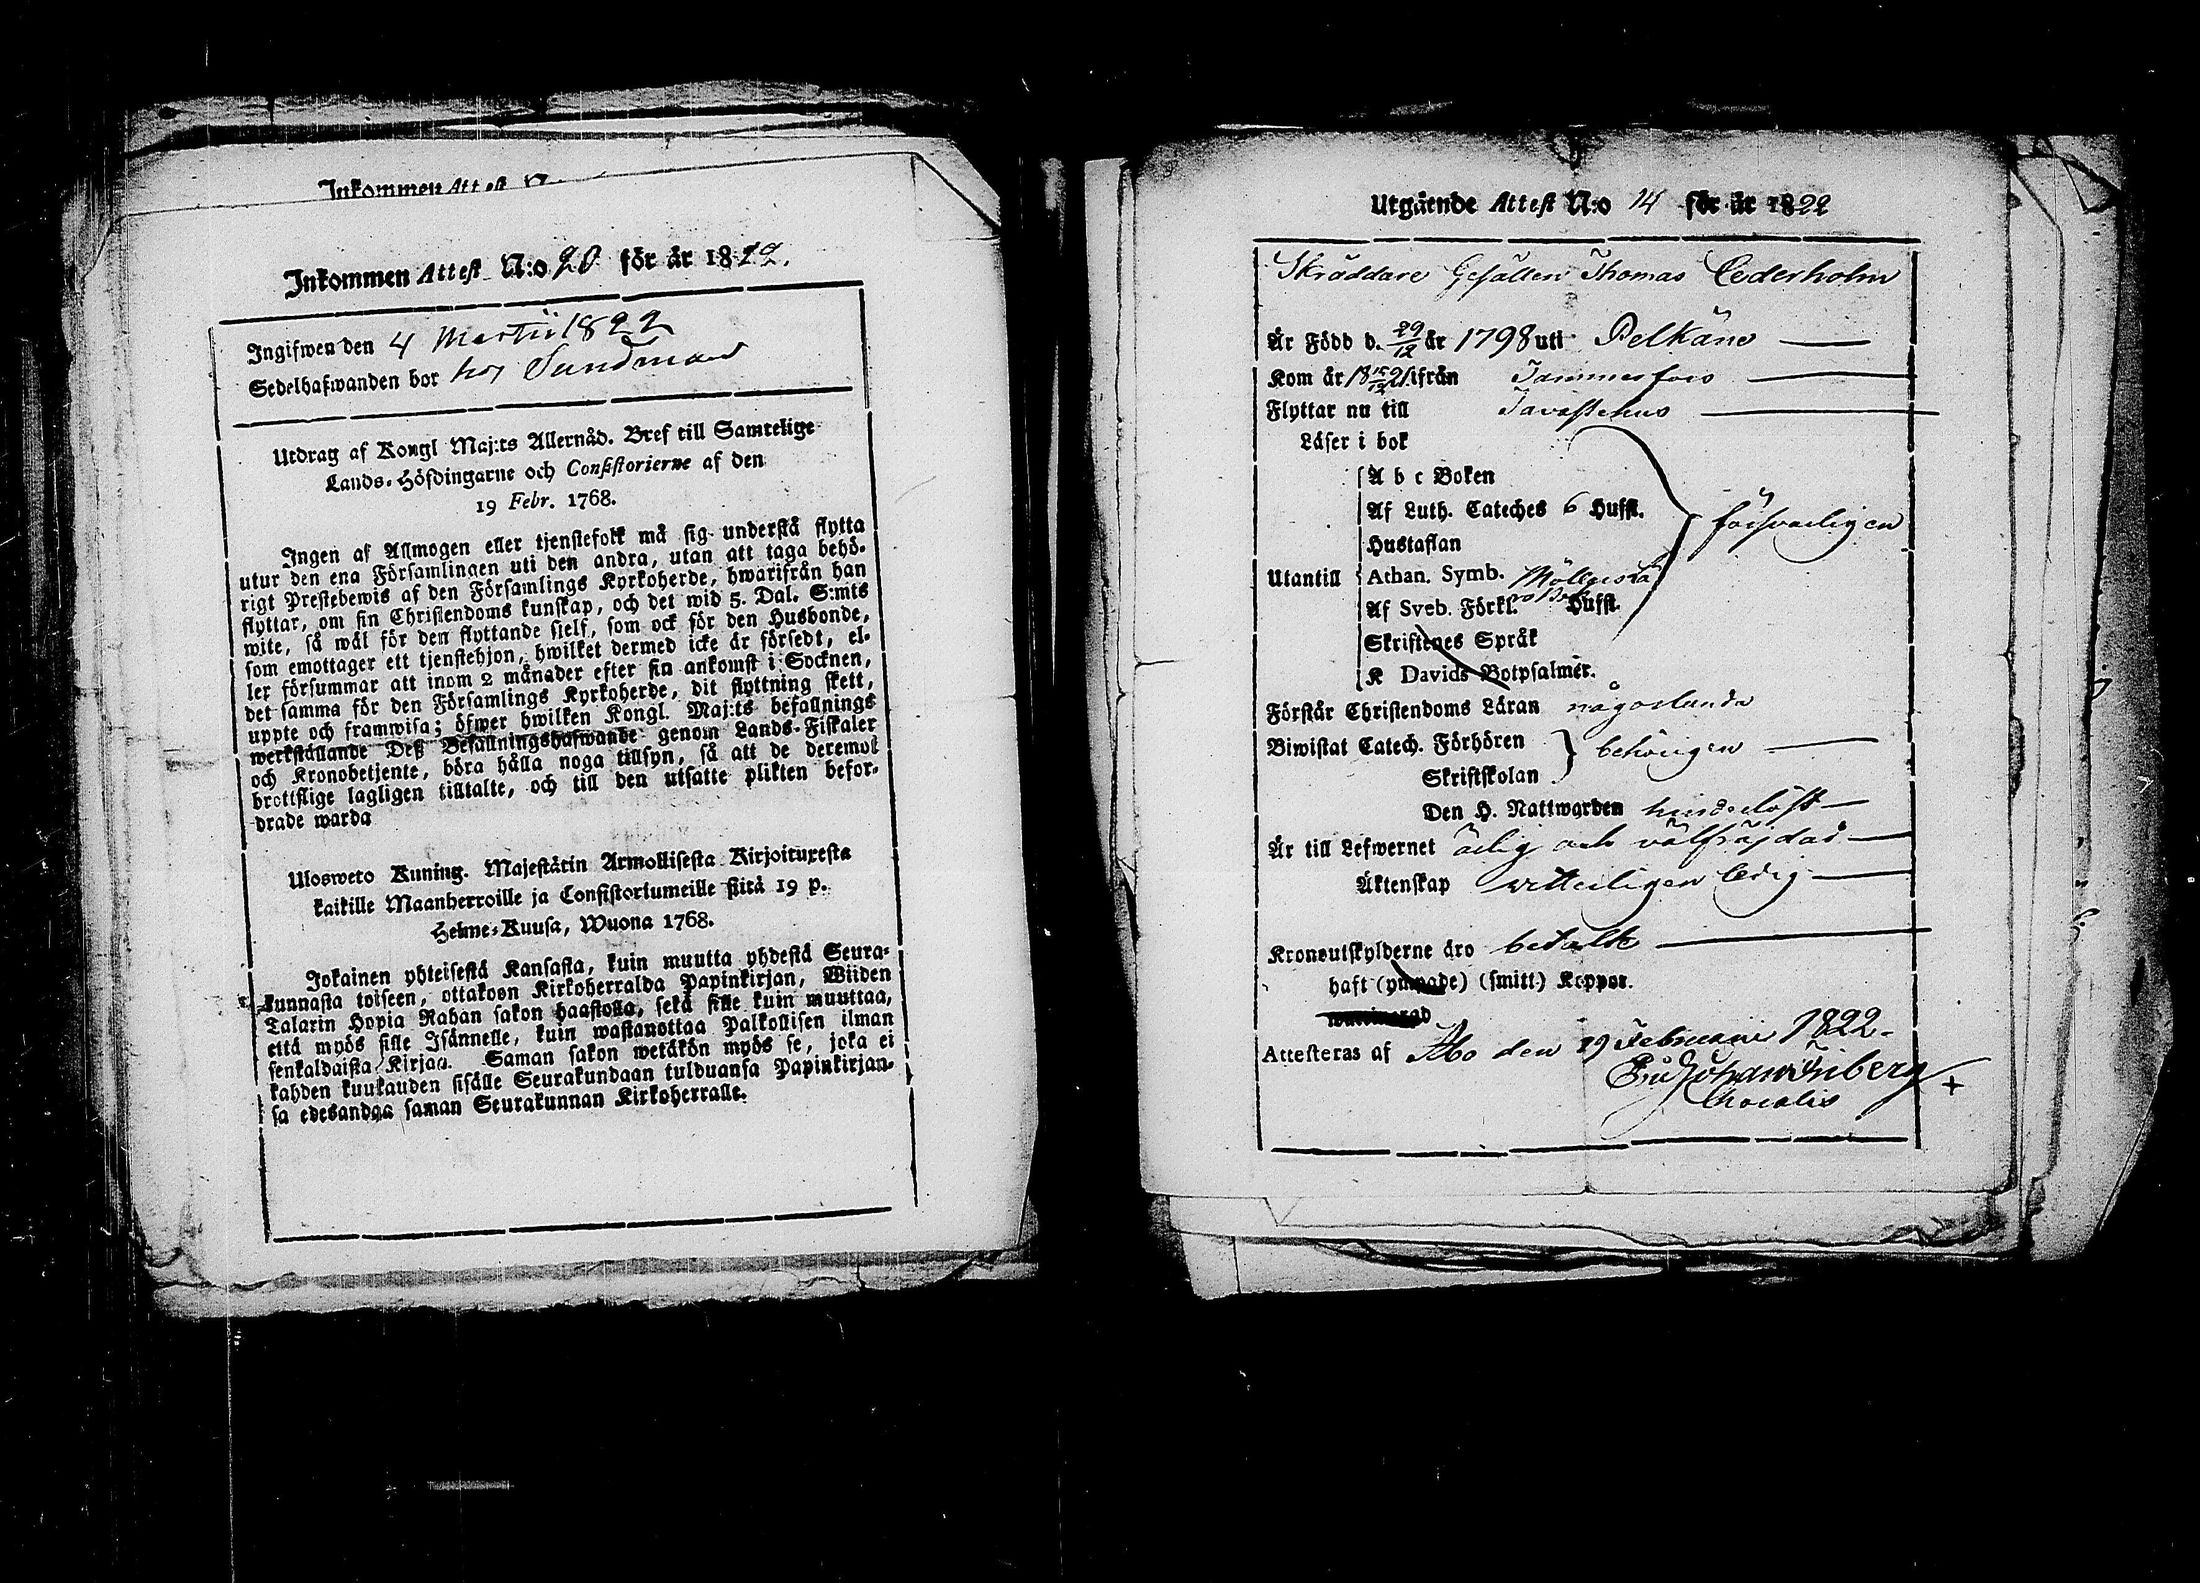 Inkommen Attest N:o
Inkommen Attest N:o 20 för år 1822.
Ingifwen den 4 Martii 1822
Sedelhafwanden bor hos Sundman
Utdrag af Kongl Maj:ts Allernåd. Bref till Samtelige
Lands-Höfdingarne och Consistorierne af den
19 Febr. 1768.
Ingen af Allmogen eller tjenstefolk må sig understå flytta
utur den ena Församlingen uti den andra, utan att taga behö-
rigt Prestebewis af den Församlings Kyrkoherde, hwarifrån han
flyttar, om sin Christendoms kunskap, och det wid 5. Dal. S:mts
wite, så wäl för den flyttande sjelf, som ock för den Husbonde,
som emottager ett tjenstehjon, hwilket dermed icke är försedt, el-
ler försummar att inom 2 månader efter sin ankomst i Socknen,
det samma för den Församlings Kyrkoherde, dit flyttning skett,
uppte och framwisa; öfwer hwilken Kongl. Maj:ts befallnings
werkställande Deß Befallningshafwande genom Lands-Fiskaler
och Kronobetjente, böra hålla noga tillsyn, så att de deremot
brottslige lagligen tilltalte, och till den utsatte plikten befor-
drade warda
Ulosweto Kuning. Majestätin Armollisesta Kirjoituxesta
kaikille Maanherroille ja Consistoriumeille siitä 19 p.
Helme-Kuusa, Wuona 1768.
Jokainen yhteisestä Kansasta, kuin muutta yhdestä Seura-
kunnasta toiseen, ottakoon Kirkoherralda Papinkirjan, Wiiden
Talarin Hopia Rahan sakon haastolla, sekä sille kuin muuttaa,
että myös sille Isännelle, kuin wastanottaa Palkollisen ilman
senkaldaista Kirjaa. Saman sakon wetäkön myös se, joka ei
kahden kuukauden sisälle Seurakundaan tulduansa Papinkirjan-
sa edesandaa saman Seurakunnan Kirkoherralle.
Utgående Attest N:o 14 för år 1822
Skräddare Gesällen Thomas Cederholm
Är Född d. 29/12 år 1798 uti Pelkäne
Kom år 18 15/12 21 ifrån Tammerfors
Flyttar nu till Tavastehus
Läser i bok
A b c Boken
Af Luth. Cateches 6 Hufst.
Hustaflan
försvarligen
Utantill Athan. Symb.
Af Sveb. Förkl. Hufst.
Skriftenes Språk
K Davids Botpsalmer.
Förstår Christendoms Läran någorlunda
Biwistat Catech. Förhören behörigen
Skriftskolan
Den H. Nattwarden hinderlöst
Är till Lefwernet ärlig och välfräjdad
Äktenskap vitterligen ledig
Kronoutskylderne äro betalte
haft (ympade) (smitt) Koppor.
Attesteras af Åbo den 19 Februarii 1822.
Johan Friberg